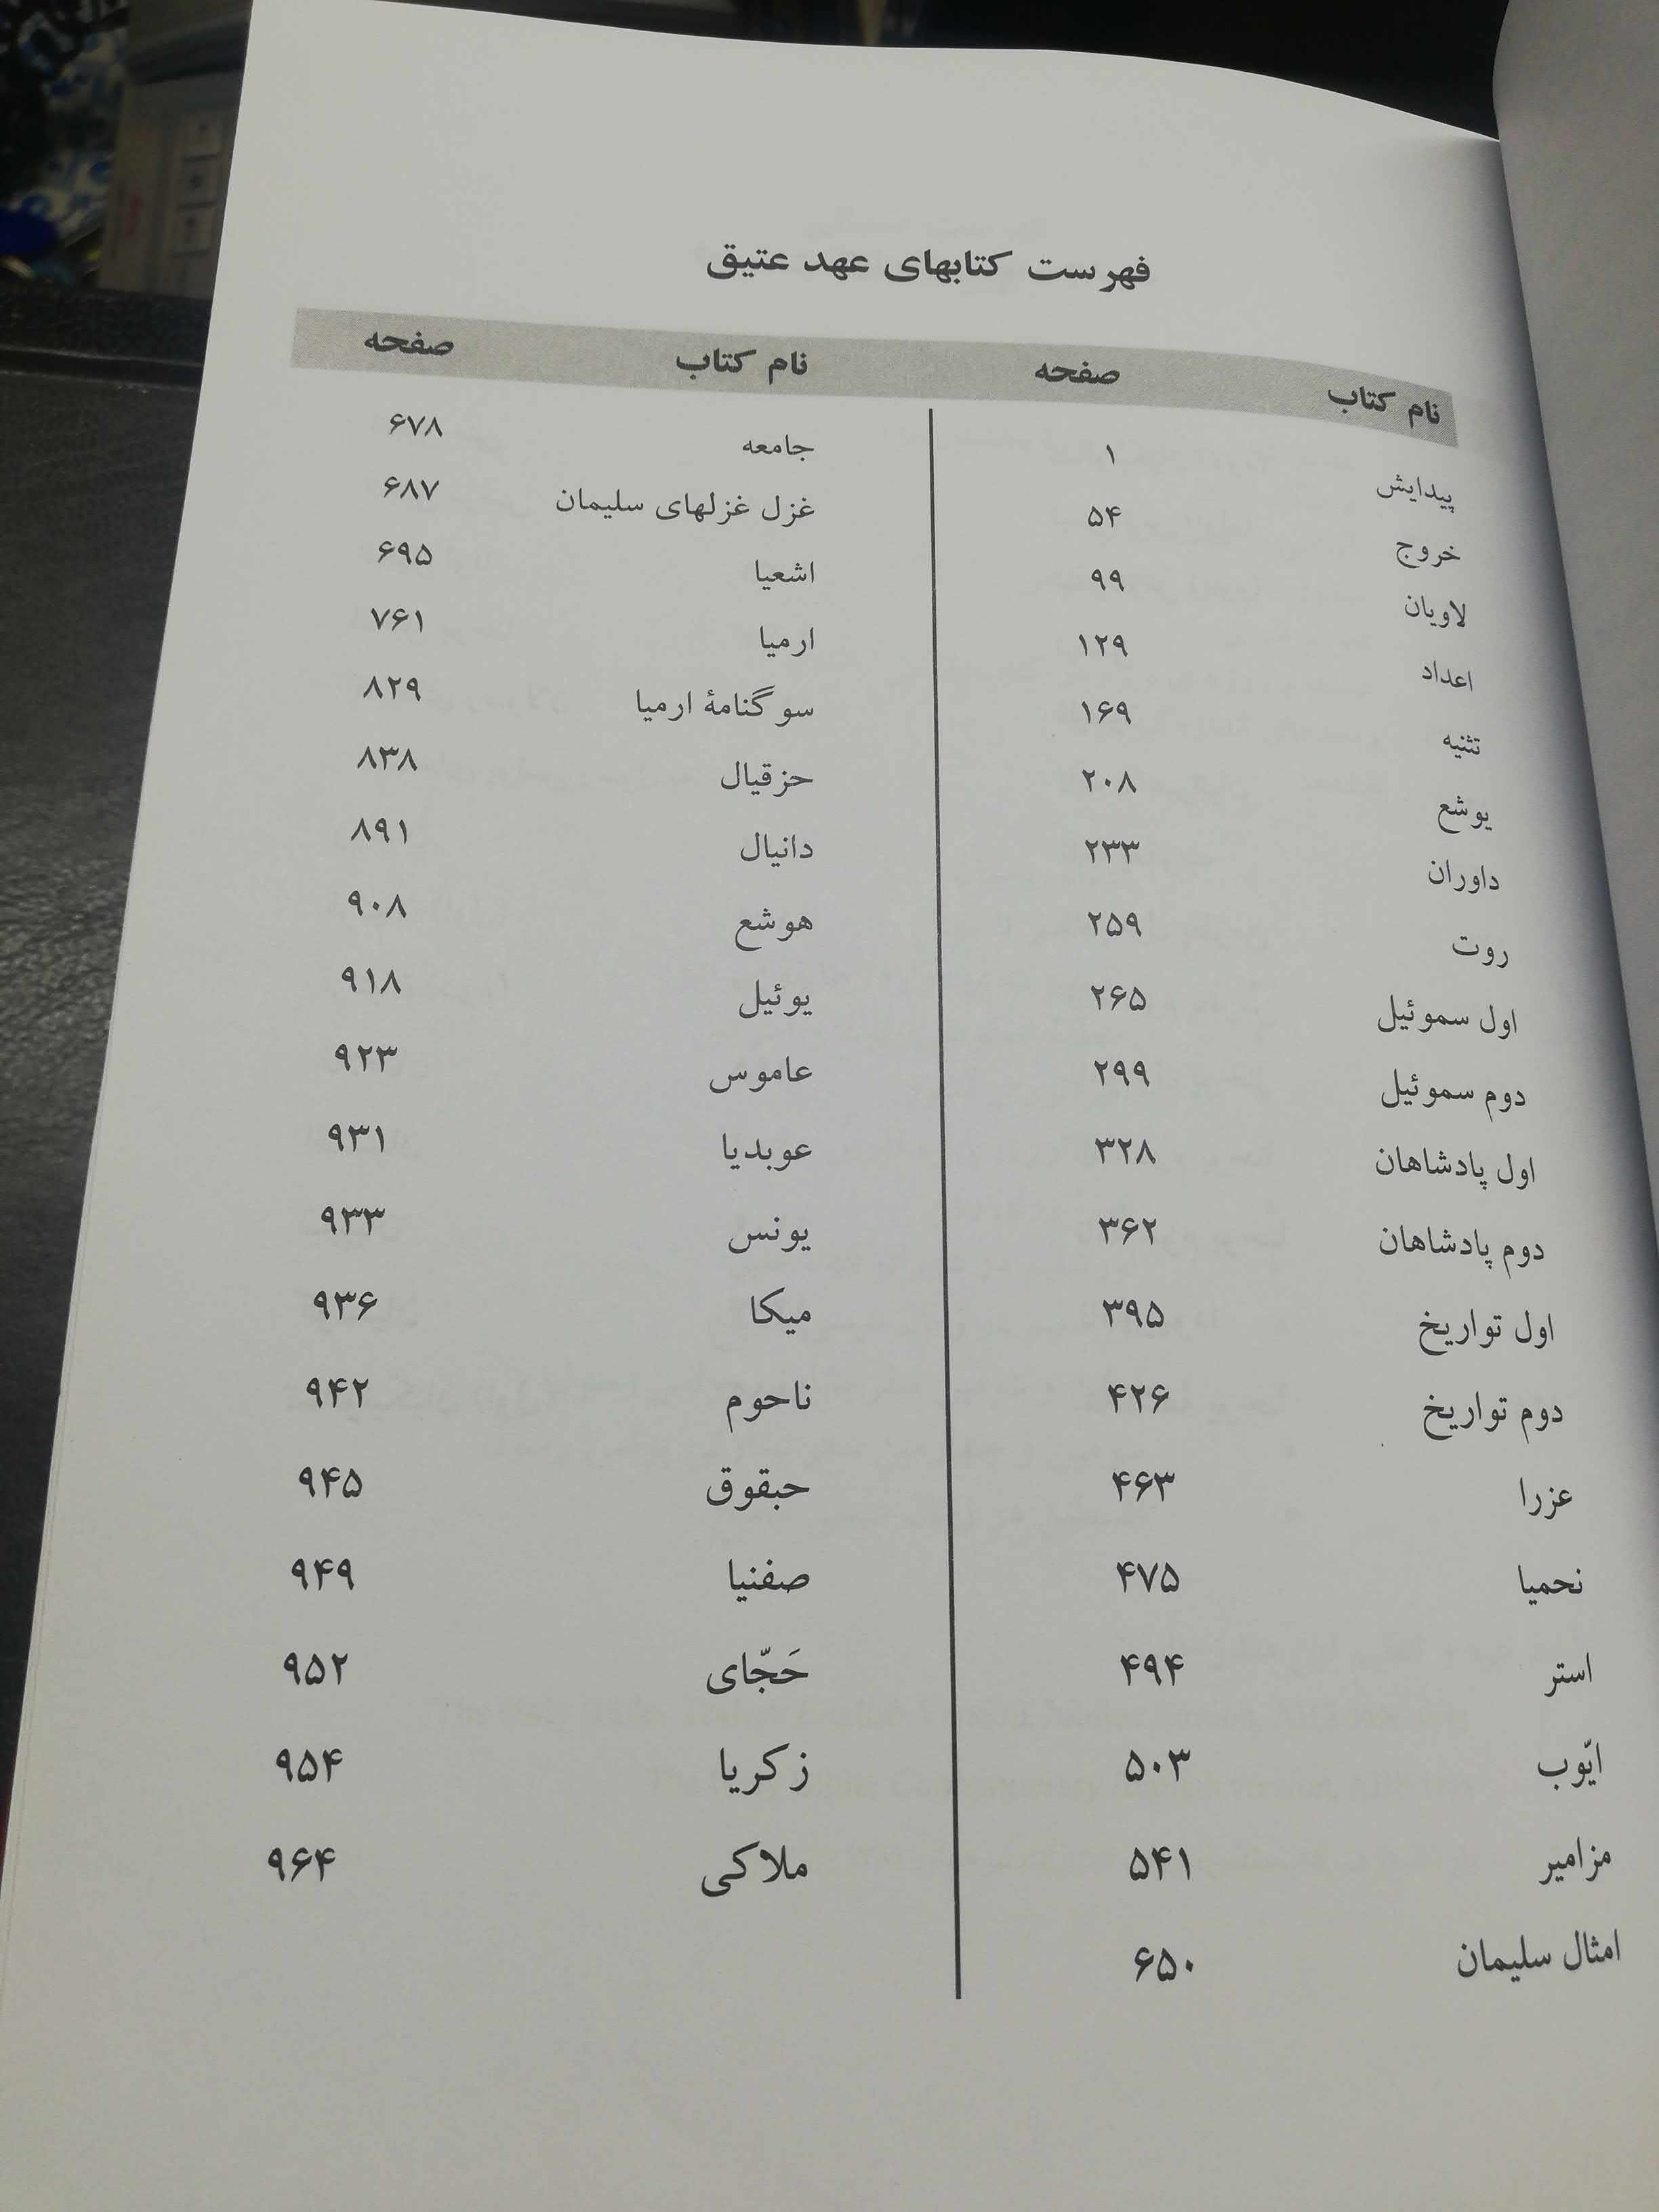 فهرست کتابهای عهد عتیق
نام کتاب صفحه
پیدایش ۱
خروج ۵۴
لاویان ۹۹
اعداد ۱۲۹
تثنیه ۱۶۹
یوشع ۲۰۸
داوران ۲۳۳
روت ۲۵۹
اول سموئیل ۲۶۵
دوم سموئیل ۲۹۹
اول پادشاهان ۳۲۸
دوم پادشاهان ۳۶۲
اول تواریخ ۳۹۵
دوم تواریخ ۴۲۶
عزرا ۴۶۳
نحمیا ۴۷۵
استر ۴۹۴
ایّوب ۵۰۳
مزامیر ۵۴۱
امثال سلیمان ۶۵۰
نام کتاب صفحه
جامعه ۶۷۸
غزل غزلهای سلیمان ۶۸۷
اشعیا ۶۹۵
ارمیا ۷۶۱
سوگنامهٔ ارمیا ۸۲۹
حزقیال ۸۳۸
دانیال ۸۹۱
هوشع ۹۰۸
یوئیل ۹۱۸
عاموس ۹۲۳
عوبدیا ۹۳۱
یونس ۹۳۳
میکا ۹۳۶
ناحوم ۹۴۲
حبقوق ۹۴۵
صفنیا ۹۴۹
حَجّای ۹۵۲
زکریا ۹۵۴
ملاکی ۹۶۴